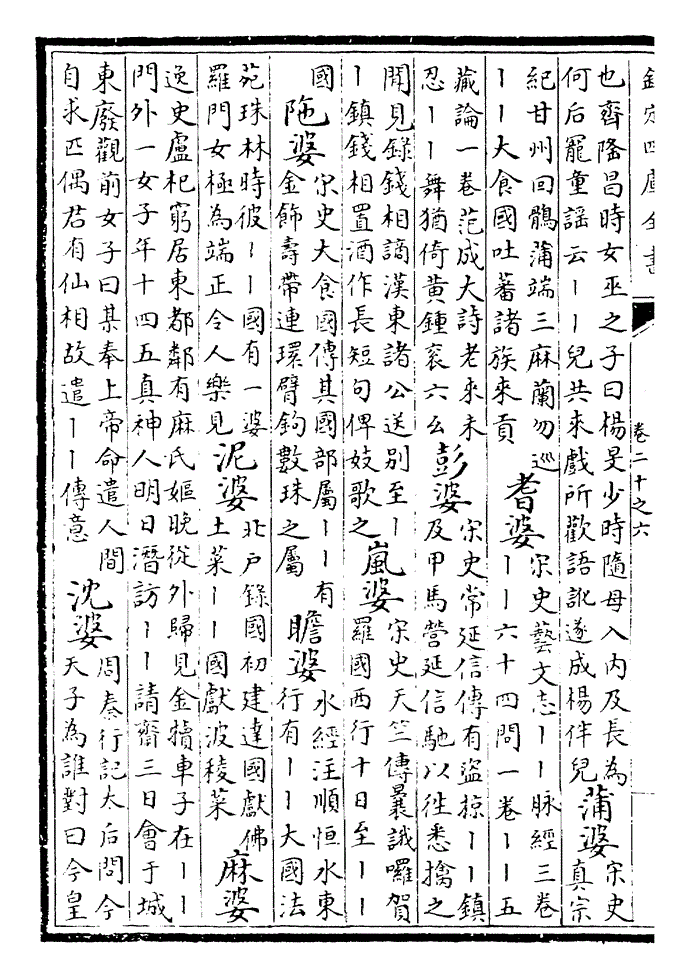 欽定四庫全書
卷二十之六
也齊隆昌時女巫之子曰楊旻少時隨母入内及長為
何后寵童謡云丨丨兒共來戲所歡語訛遂成楊伴兒
蒲婆
宋史
真宗
紀甘州回鶻蒲端三麻蘭勿巡
丨丨大食國吐蕃諸族來貢
耆婆
宋史藝文志丨丨脉經三卷
丨丨六十四問一卷丨丨五
藏論一卷范成大詩老來未
忍丨丨舞猶倚黄鍾衮六么
彭婆
宋史常延信傳有盜掠丨丨鎮
及甲馬營延信馳以徃悉擒之
聞見錄錢相謫漢東諸公送别至丨
丨鎮錢相置酒作長短句俾妓歌之
嵐婆
宋史天竺傳曩誐囉賀
羅國西行十日至丨丨
國
陁婆
宋史大食國傳其國部屬丨丨有
金飾壽帶連環臂鉤數珠之屬
瞻婆
水經注順恒水東
行有丨丨大國法
苑珠林時彼丨丨國有一婆
羅門女極為端正令人樂見
泥婆
北户錄國初建達國獻佛
土菜丨丨國獻波稜菜
麻婆
逸史盧杞窮居東都鄰有麻氏嫗晚從外歸見金犢車子在丨丨
門外一女子年十四五真神人明日潛訪丨丨請齋三日會于城
東廢觀前女子曰某奉上帝命遣人間
自求匹偶君有仙相故遣丨丨傳意
沈婆
周秦行記太后問今
天子為誰對曰今皇